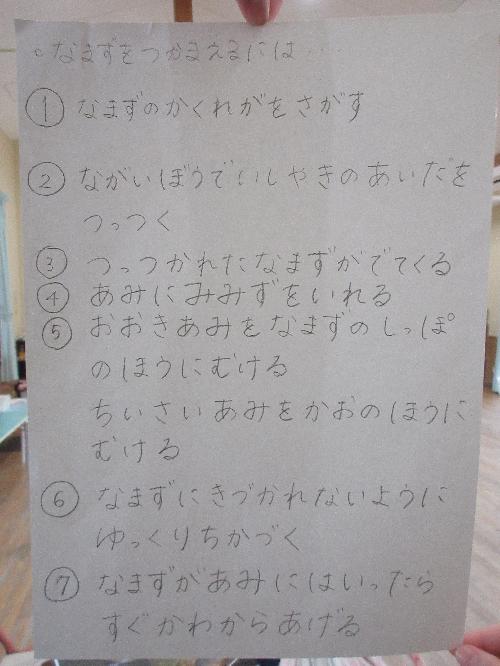 。なまずをつかまえるには…
① なまずのかくれがをさがす
② ながいぼうでいしやきのあいだを
つっつく
③ つっつかれたなまずがでてくる
④ あみにみみずをいれる
⑤ おおきあみをなまずのしっぽ
のほうにむける
ちいさいあみをかおのほうに
むける
⑥ なまずにきづかれないように
ゆっくりちかづく
⑦ なまずがあみにはいったら
すぐかわからあげる